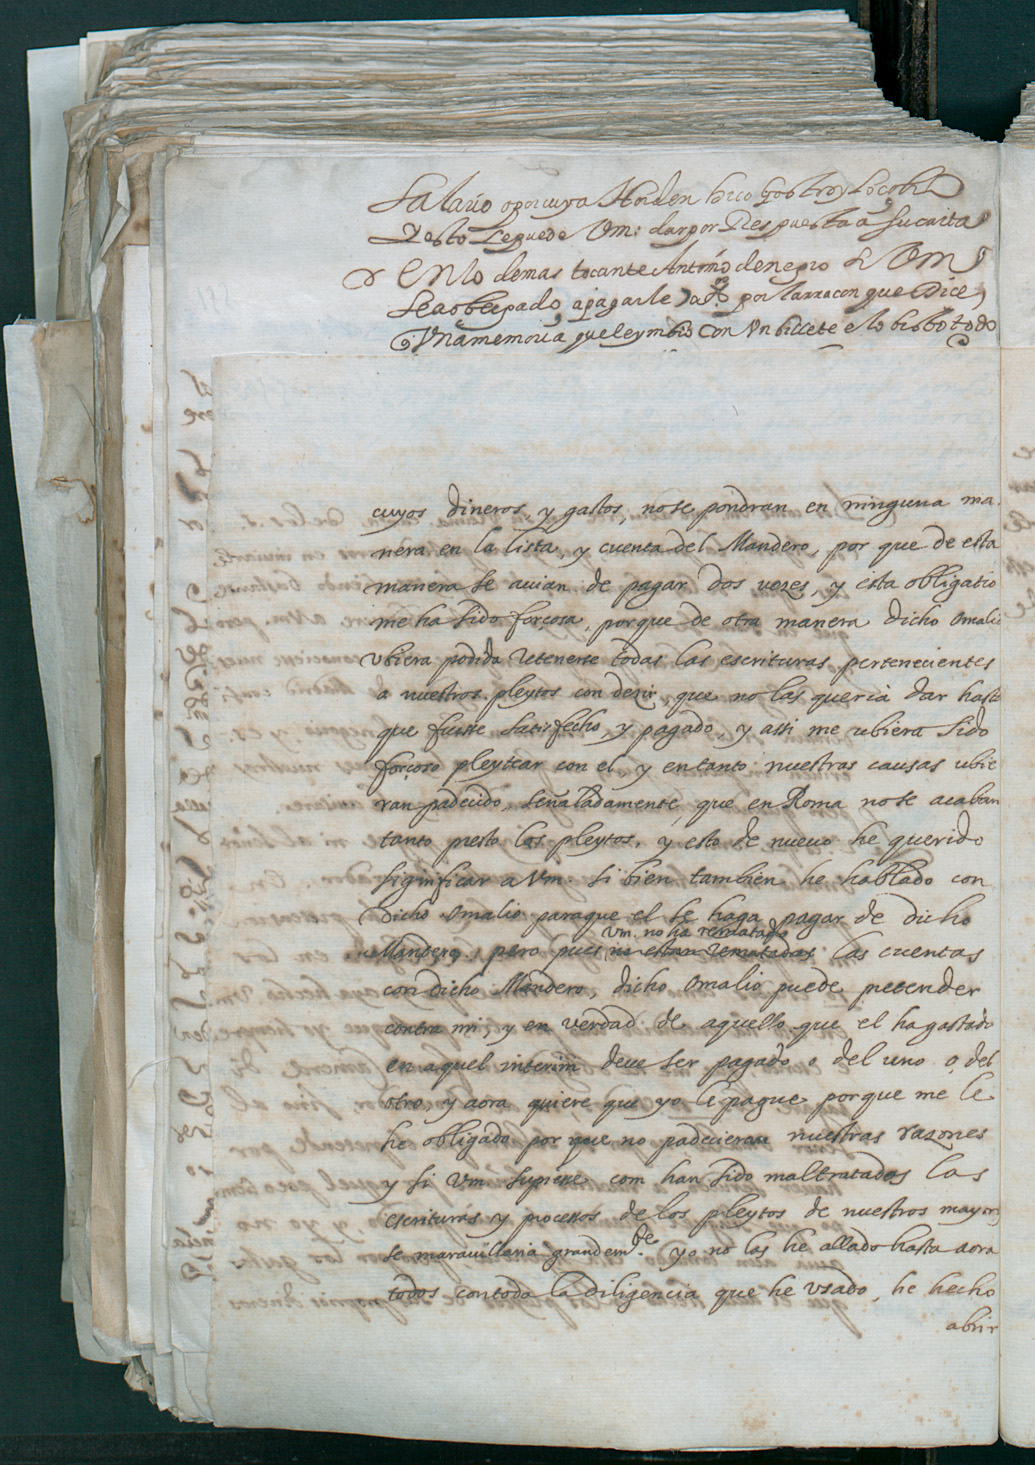 salario o por cuya Horden hico gostro y lo cobro
Y esto le puede Vm: dar por Respuesta a su carta
En lo demas tocante Antonio de negro de Vm
sea obligado a pagarle por la rracon que dice,
Una memoria que le ymbio Con Vn billete e lo bisto todo
cuyos dineros y gastos, no se pondran en ninguna ma-
nera en la lista, y cuenta del Mandero, por que de esta
manera se auian de pagar dos vezes, y esta obligatio
me ha sido forçosa, porque de otra manera dicho Omalio
vbiera podido retenerse todas las escrituras pertenecientes
a nuestros pleytos con dezir, que no las queria dar hasta
que fuesse satisfecho y pagado, y assi me ubiera sido
forçoso pleytear con el y en tanto nuestras causas ubie
ran padecido, señaladamente, que en Roma no se acaban
tanto presto los pleytos, y esto de nueuo he querido
significar a Vm. si bien tambien he hablado con
dicho Omalio paraque el se haga pagar de dicho
Vm. no ha rematado
Mandero, pero pues no estan rematadas las cuentas
con dicho Mandero, dicho Omalio puede pretender
contra mi, y en verdad de aquello que el ha gastado
en aquel interim deue ser pagado o del uno o del
otro, y aora quiere que yo le pague porque me le
he obligado por que no padecieran nuestras razones
y si Vm supiesse com han sido maltratados las
escrituras y processos de los pleytos de nuestros mayores
se marauillaria grandemte. yo no las he allado hasta aora
todos con toda la diligencia que he vsado, he hecho
abrir